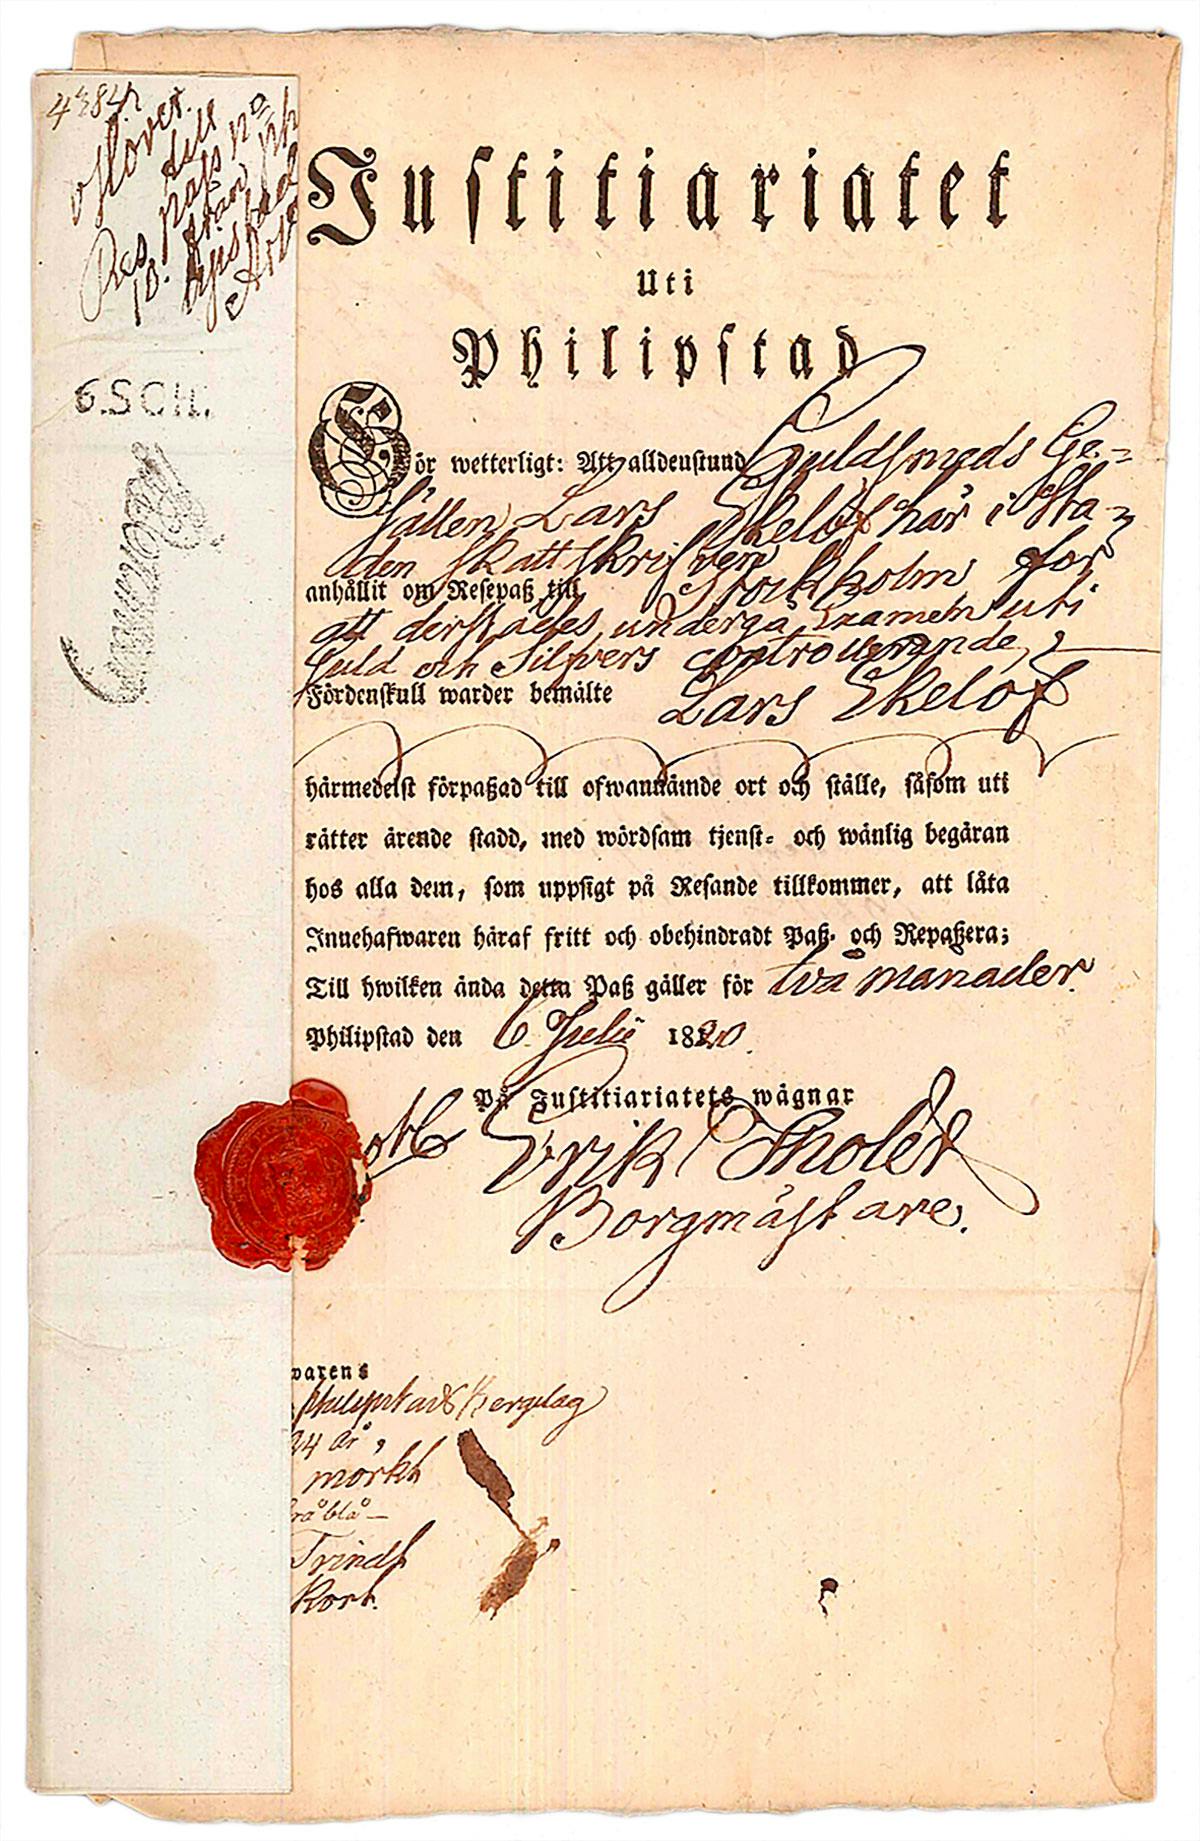 Justitiariatet
Uti
Philipstad
Gör wetterligt: Att alldenstund Guldsmeds Ge-
sällen Lars Ekelöf här i Sta-
den skattskrifven
anhållit om Resepaß till Stockholm for
att derstädes undergå Examen uti
Guld och Silfvers controllerande,
Fördenskull warder bemälte Lars Ekelöf
härmedelst förpaßad till ofwannämde ort och ställe, såsom uti
rätter ärende stadd, med wördsam tjenst- och wänlig begäran
hos alla dem, som uppsigt på Resande tillkommer, att låta
Innehafwaren häraf fritt och obehindradt Paß- och Repaßera;
Till hwilken ända detta Paß gäller för två månader.
Philipstad den 6 Julii 1820.
På Justitiariatets wägnar
Erik Tholér
Borgmästare.
warens
Philipstads Bergslag
24 år,
morkt
gråblå
Trindt
Kort.
4384
till
Pass no
10. från
6.SCH.